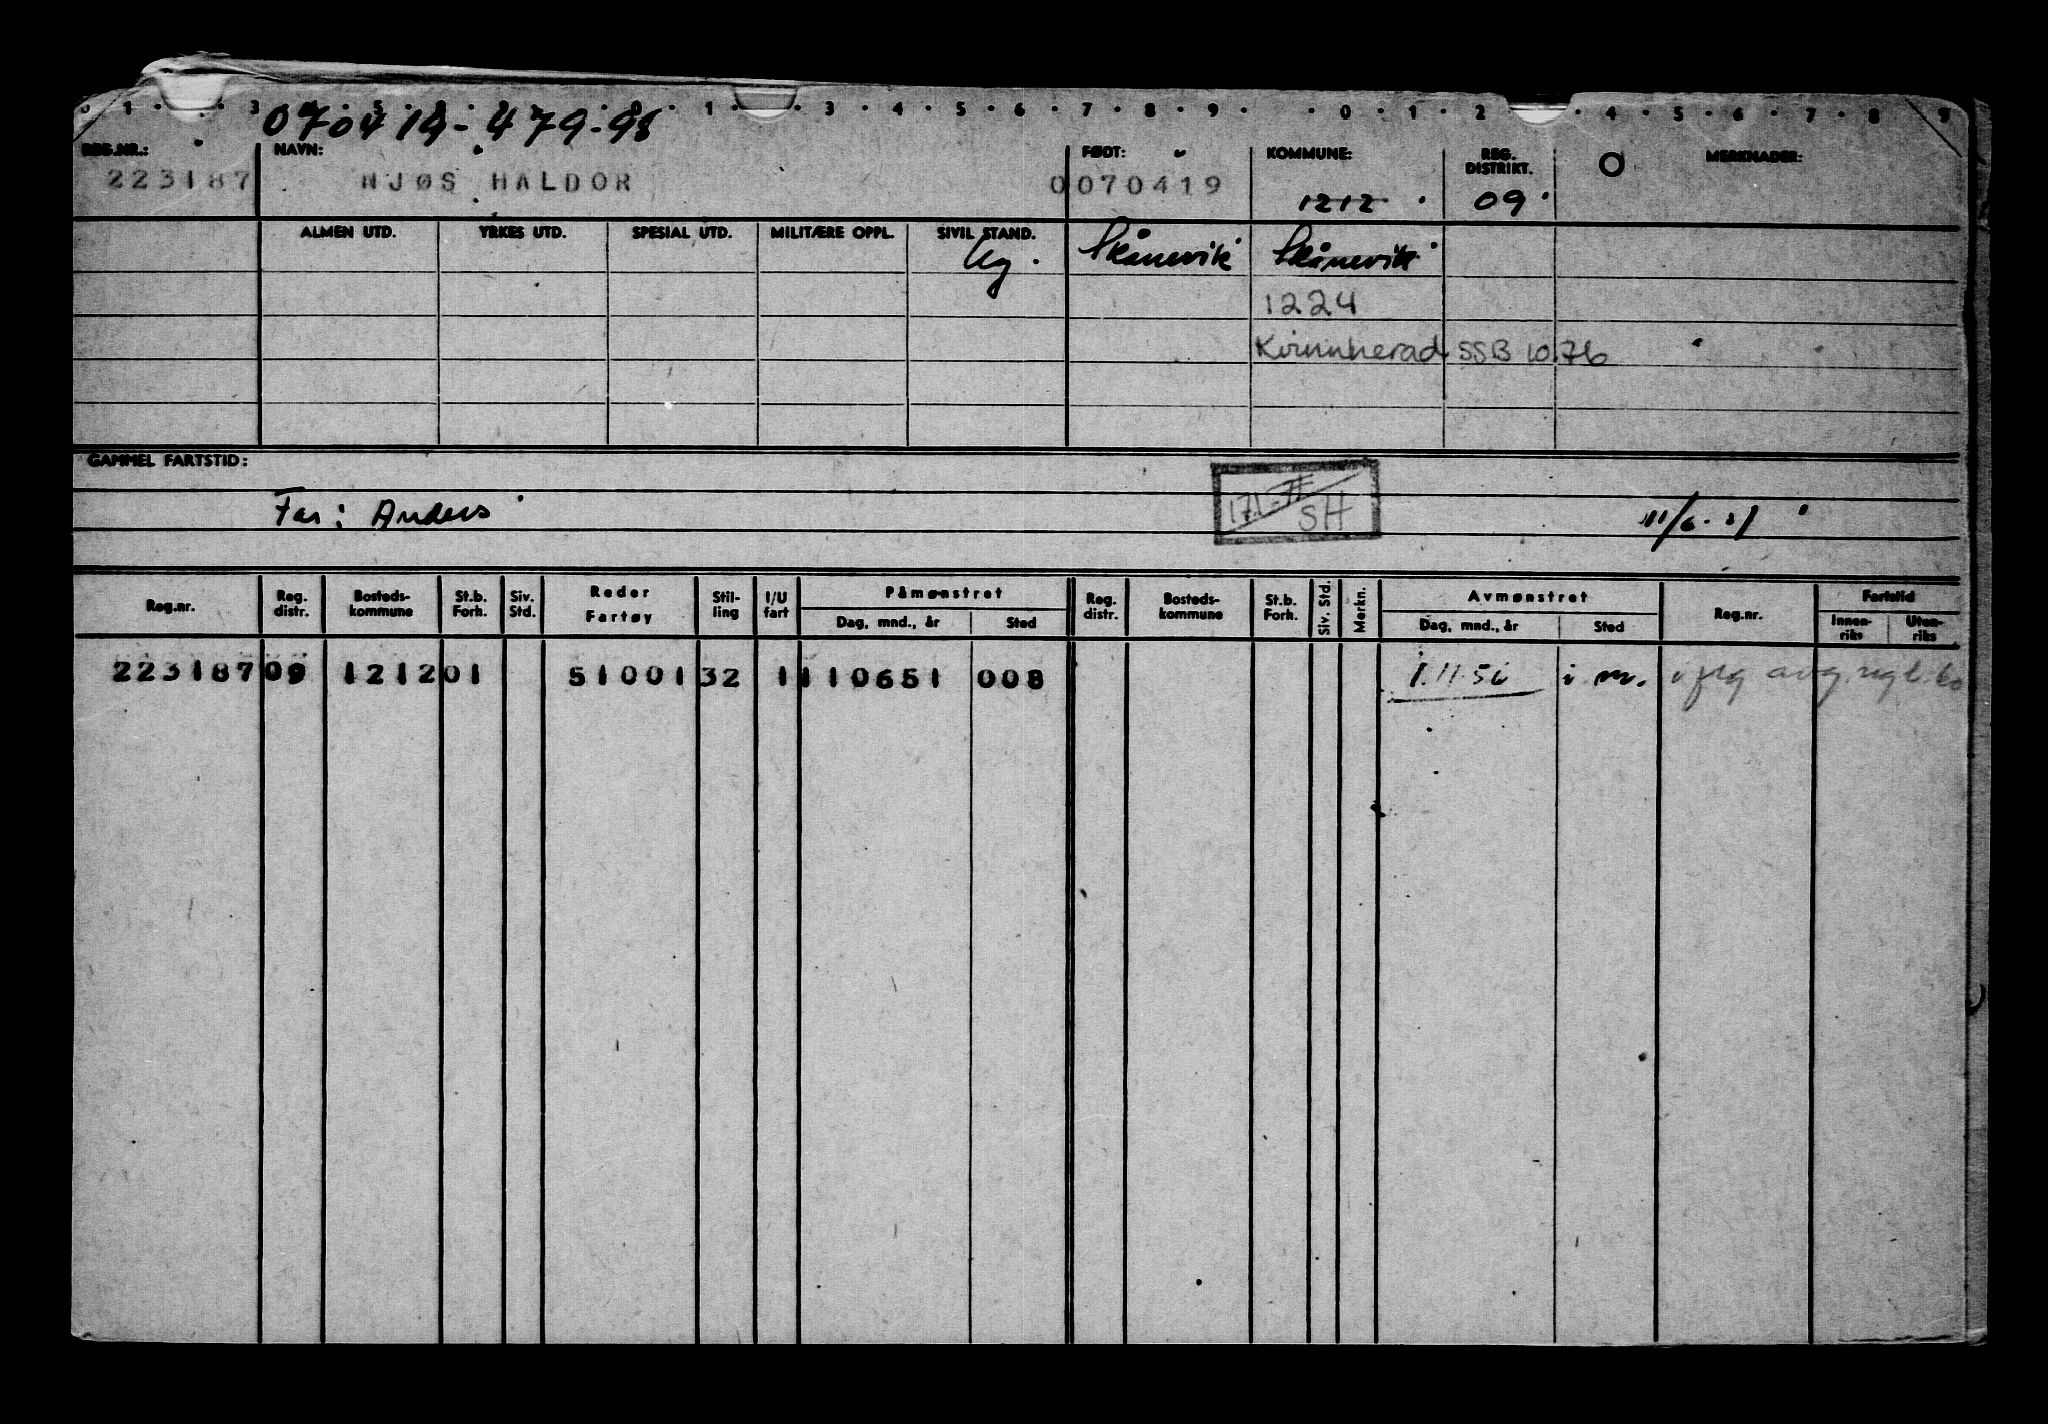 070419-479-98
REG.NR.: NAVN: FØDT: KOMMUNE: REG. DISTRIKT. MERKNADER:
223187 NJØS HALDOR 0070419 1212 09
ALMEN UTD. YRKES UTD. SPESIAL UTD. MILITÆRE OPPL. SIVIL STAND.
Ug. Skånevik Skånevik
1224
Kvinnherad SSB 10.76
GAMMEL FARTSTID:
Far: Anders
SH
Reg.nr. Reg. distr. Bosteds-kommune St.b. Forh. Siv. Std. Reder Fartøy Stil-ling I/U fart Påmønstret Dag, mnd., år Sted Reg. distr. Bosteds-kommune St.b. Forh. Siv. Std. Merkn. Avmønstret Dag, mnd., år Sted Reg.nr. Fartstid Innen-riks Uten-riks
223187 09 1212 01 51001 32 1 110651 008 i m.